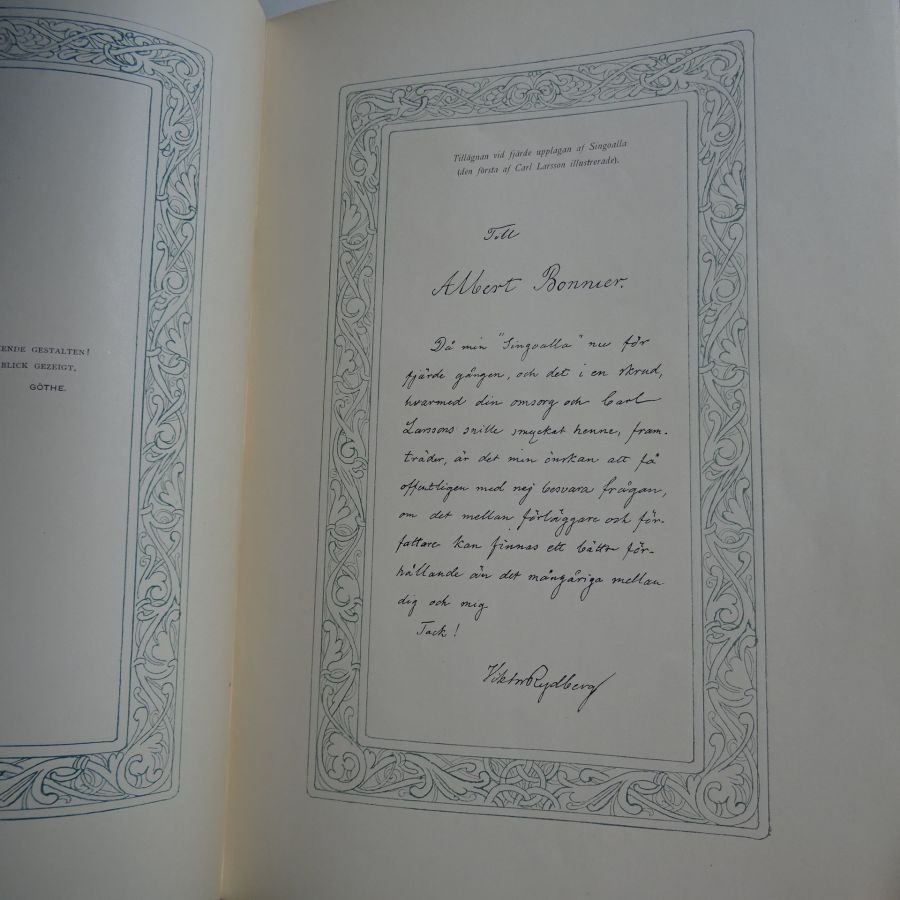 ENDE GESTALTEN!
BLICK GEZEIGT.
GÖTHE.
Tillägnan vid fjärde upplagan af Singoalla
(den första af Carl Larsson illustrerade).
Till
Albert Bonnier.
Då min "Singoalla" nu för
fjärde gången, och det i en skrud,
hvarmed din omsorg och Carl
Larssons snille smyckat henne, fram-
träder, är det min önskan att få
offentligen med nej besvara frågan,
om det mellan förläggare och för-
fattare kan finnas ett bättre för-
hållande än det mångåriga mellan
dig och mig
Tack!
Viktor Rydberg